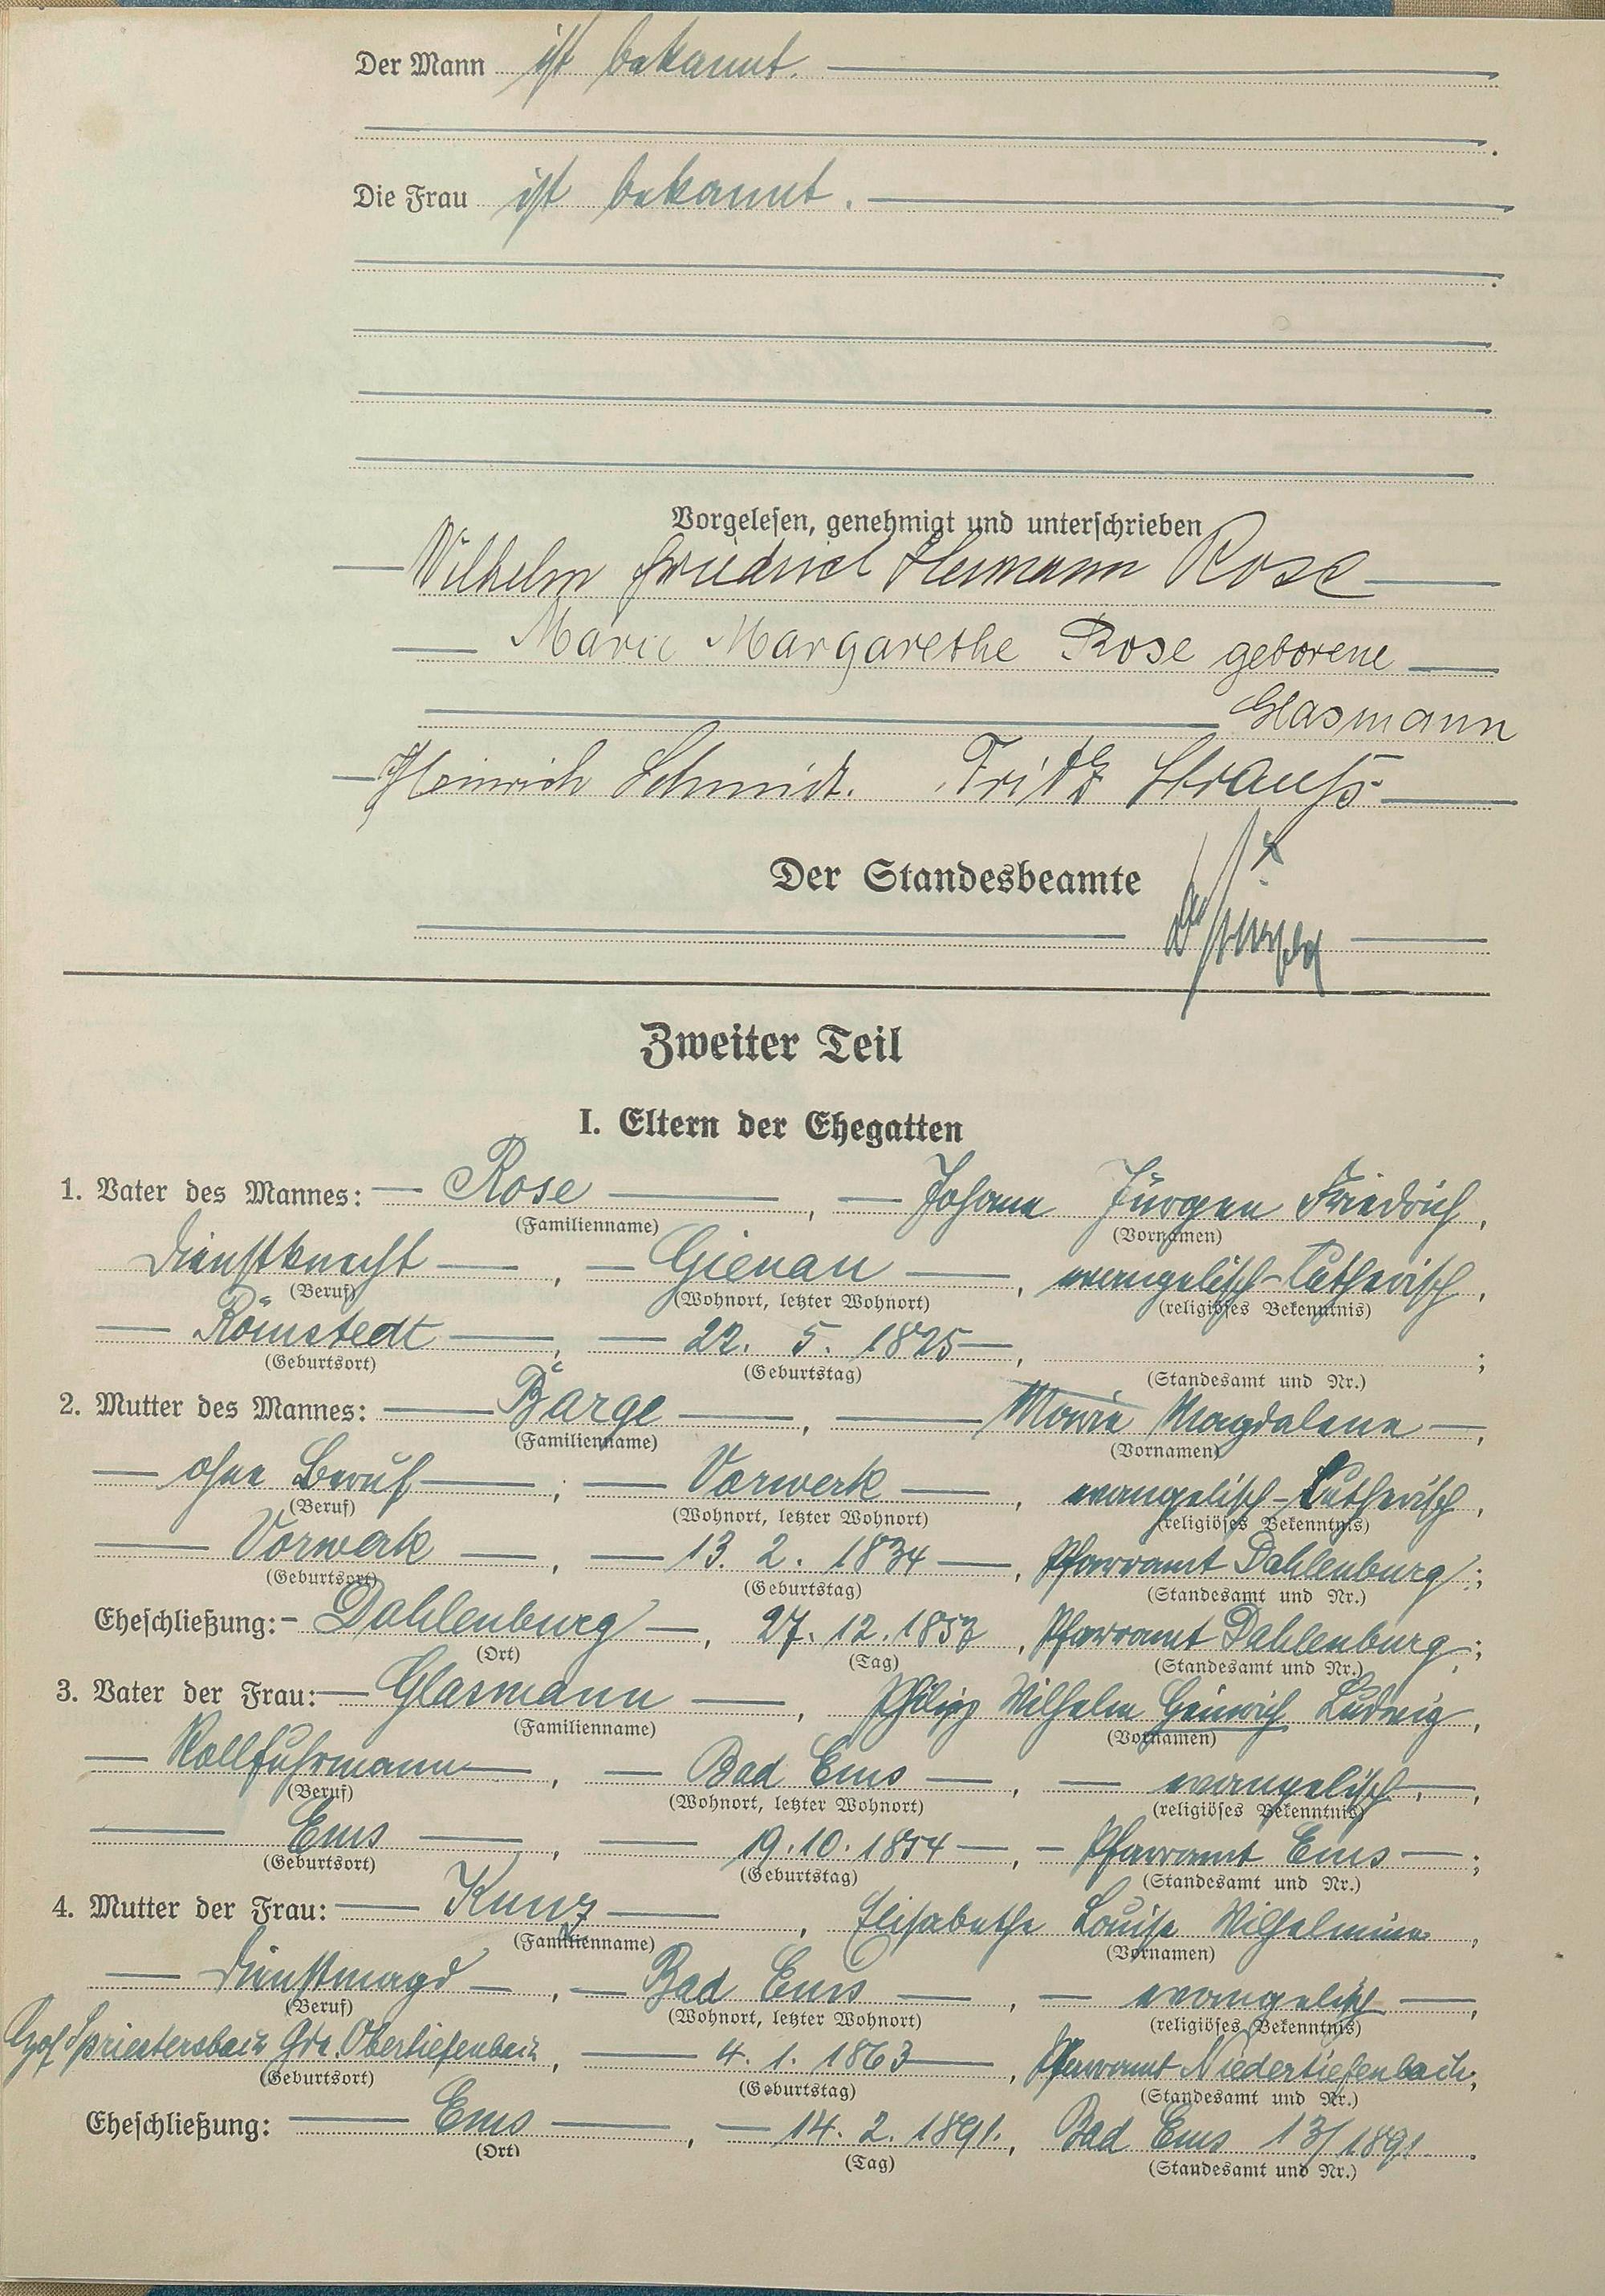 Der Mann ist bekannt.
Die Frau ist bekannt.
Vorgelesen, genehmigt und unterschrieben
Wilhelm Friedrich Hermann Rose
Marie Margarethe Rose geborene
Glasmann
Heinrich Schmidt. Fritz Strauß
Der Standesbeamte
Zweiter Teil
I. Eltern der Ehegatten
1. Vater des Mannes: Rose, Johann Jürgen Friedrich,
(Familienname) (Vornamen)
Dienstknecht, Gienau, evangelisch-lutherisch,
(Beruf) (Wohnort, letzter Wohnort) (religiöses Bekenntnis)
Römstedt, 22. 5. 1825,
(Geburtsort) (Geburtstag) (Standesamt und Nr.)
2. Mutter des Mannes: Barge, Marie Magdalene,
(Familienname) (Vornamen)
ohne Beruf, Vorwerk, evangelisch-lutherisch,
(Beruf) (Wohnort, letzter Wohnort) (religiöses Bekenntnis)
Vorwerk, 13. 2. 1834, Pfarramt Dahlenburg;
(Geburtsort) (Geburtstag) (Standesamt und Nr.)
Eheschließung: Dahlenburg, 27. 12. Pfarramt Dahlenburg;
(Ort) (Tag) (Standesamt und Nr.)
3. Vater der Frau: Glasmann, Philipp Wilhelm Heinrich Ludwig,
(Familienname) (Vornamen)
Rollfuhrmann, Bad Ems, evangelisch,
(Beruf) (Wohnort, letzter Wohnort) (religiöses Bekenntnis)
Ems, 19. 10. 1854, Pfarramt Ems;
(Geburtsort) (Geburtstag) (Standesamt und Nr.)
4. Mutter der Frau: Kunz, Elisabethe Louise Wilhelmine,
(Familienname) (Vornamen)
Dienstmagd, Bad Ems, evangelisch,
(Beruf) (Wohnort, letzter Wohnort) (religiöses Bekenntnis)
Hof Spriestersbach Gde. Obertiefenbach, 4. 1. 1863, Pfarramt Niedertiefenbach;
(Geburtsort) (Geburtstag) (Standesamt und Nr.)
Eheschließung: Ems, 14. 2. 1891, Bad Ems 13/1891.
(Ort) (Tag) (Standesamt und Nr.)